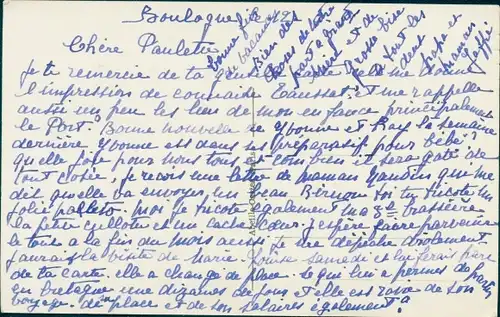 Boulogne le 12
Chère Paulette
Je te remercie de ta
l'impression de connaitre et me rappelle
aussi un peu les lieux de mon enfance principalement
le Port. Bonne nouvelle de Yvonne et Ray la semaine
dernière. Yvonne est dans ses préparatifs pour Bébé
quelle joie pour nous tous et combien il sera gâté de
tout côtés. Je reçois une lettre de maman qui me
dit quelle va envoyer un beau toi tu tricote un
joli paletots moi je tricote également ma 3e brassière
la petite culotte et un cache cœur. J'espère faire parvenir
le tout a la fin du mois aussi je me dépêche drolement
J'aurais la visite de Marie Louise Samedi et lui ferais part
de ta carte. elle a changé de place. Ce qui lui a permis de partir
en bretagne une dizaines de jours et elle est ravie de son
voyage. de place et de son salaires également.
Bonne fin
de vacances
Bien des
choses de notre
part a
et de
Grosse bise
a tout les
deux
papa et
maman